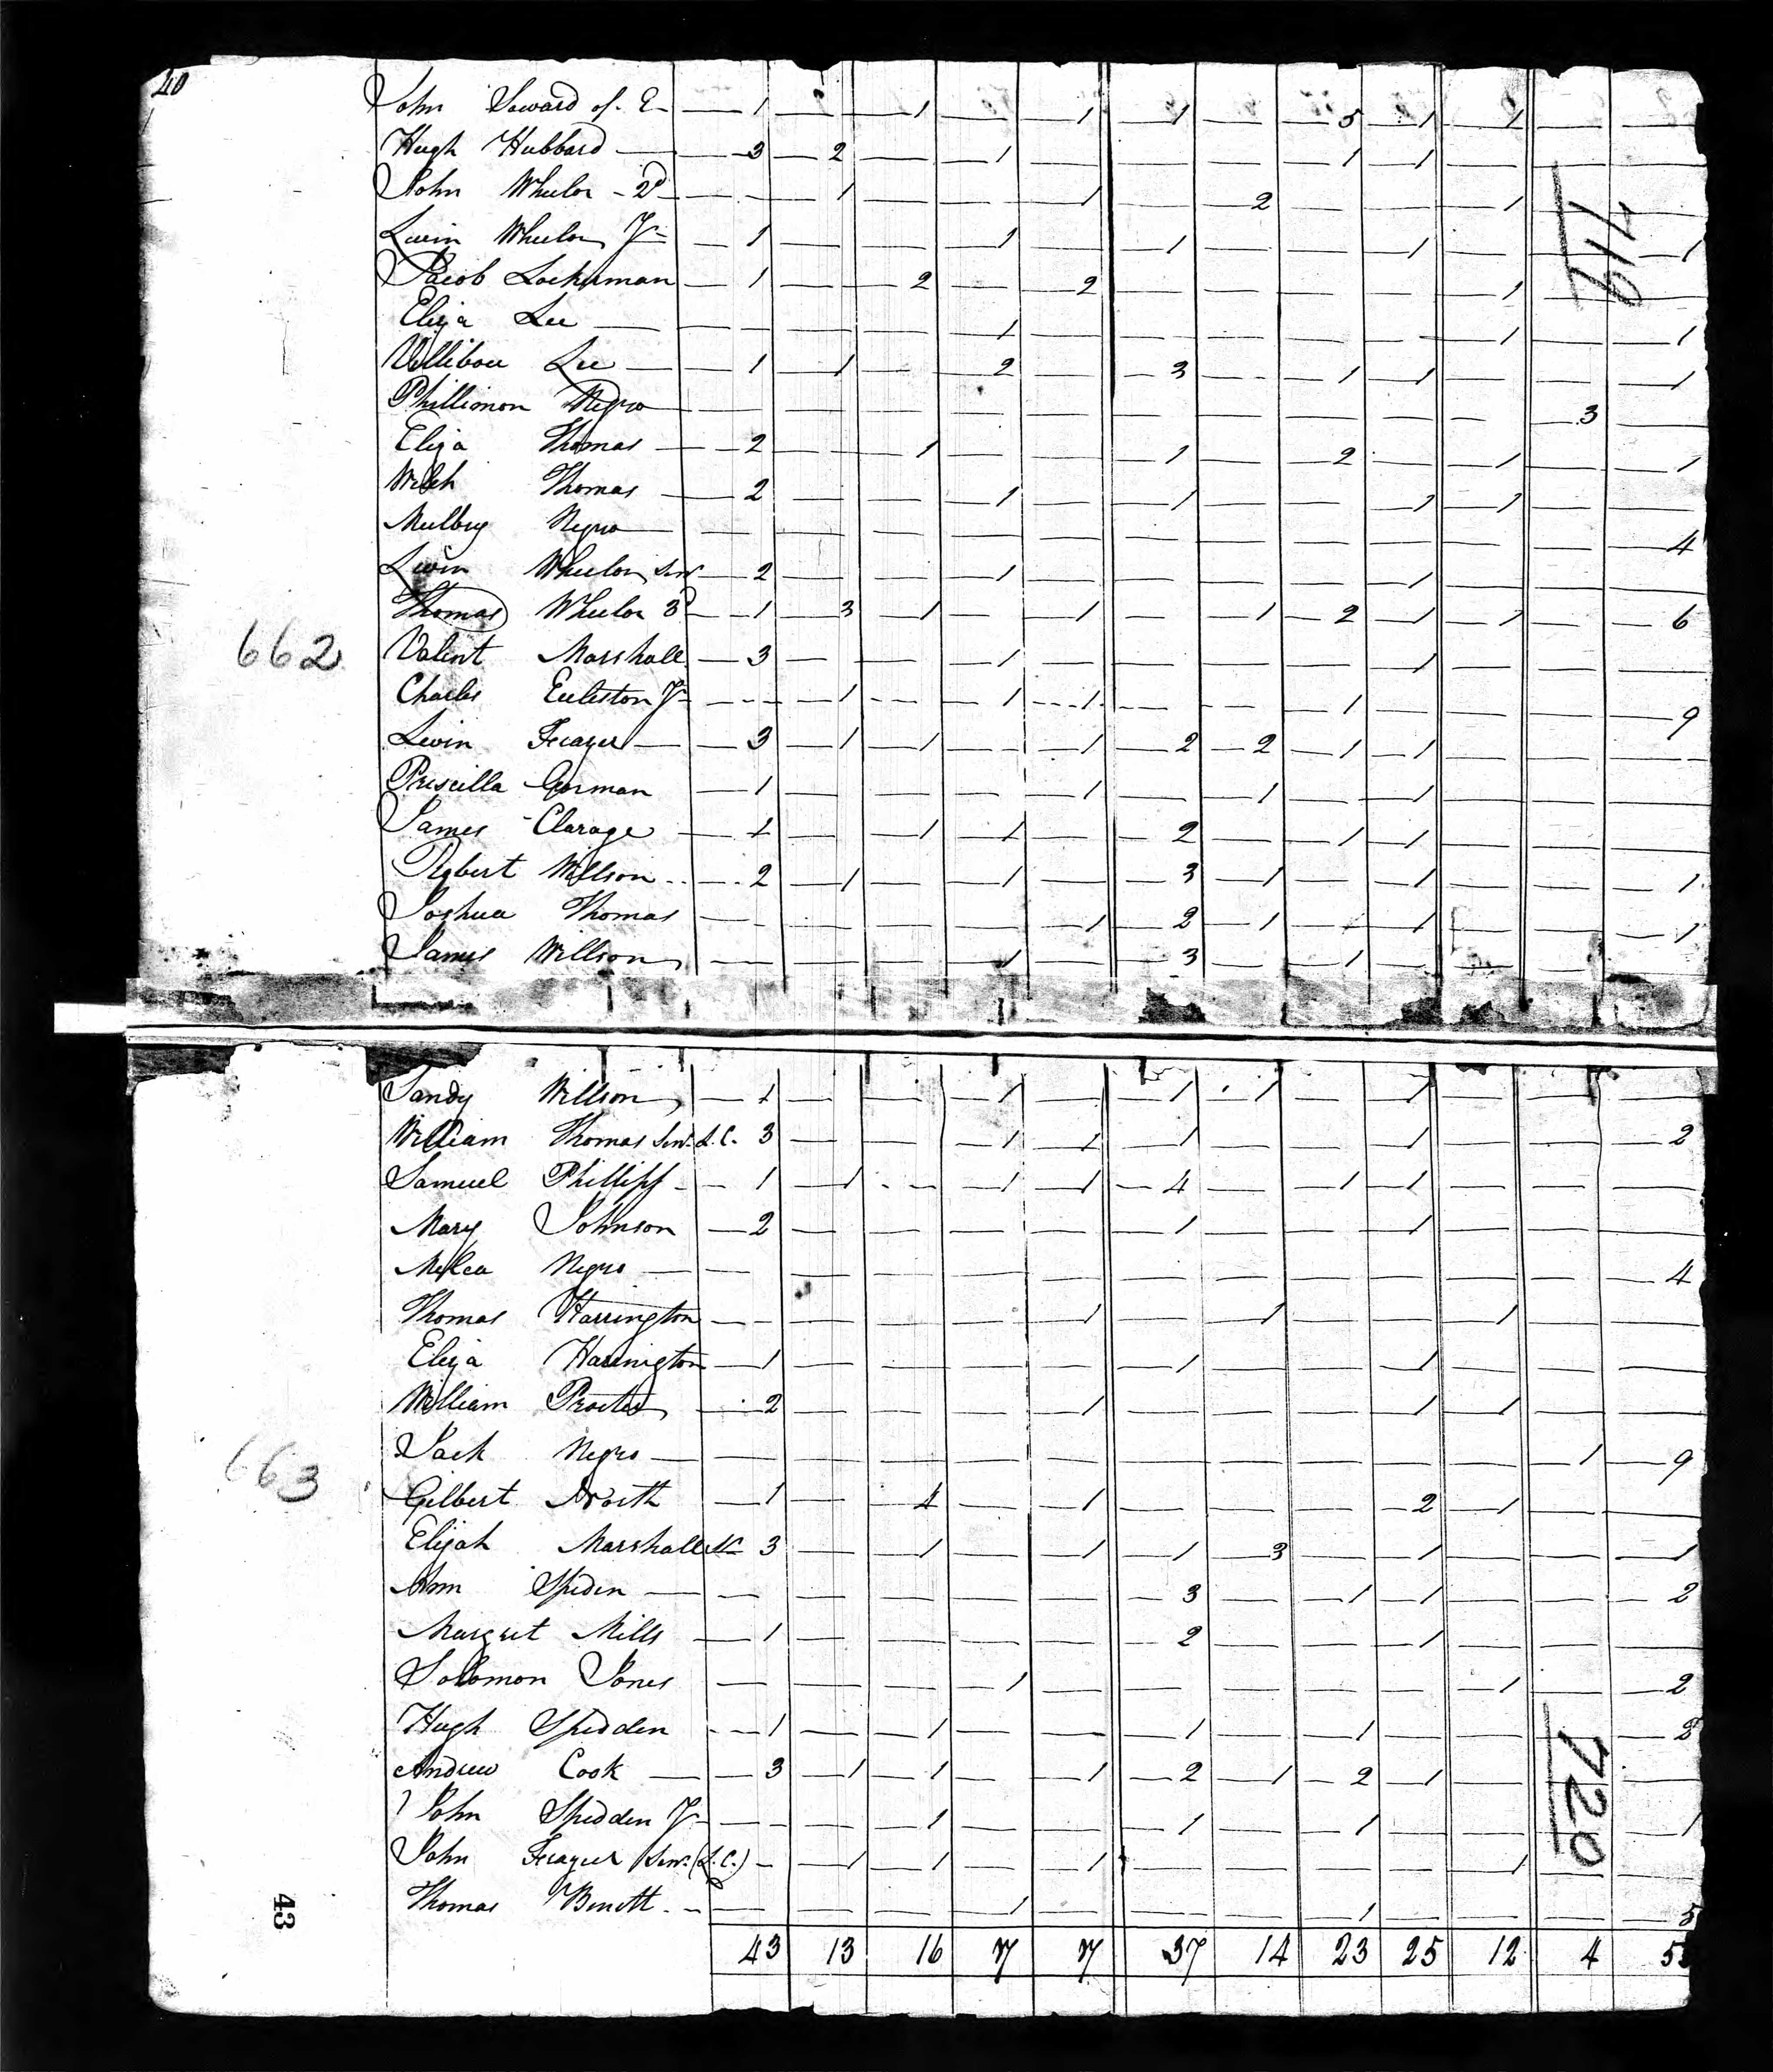 40
John Soward of. E— — 1 — — 1 — 1 1 — 5 1 1 — —
Hugh Hubbard — 3 2 — 1 — — — 1 1 — — —
John Wheelor - 2d — — 1 — — 1 — 2 — — 1 — —
Levin Wheelor Jr — 1 — — 1 — 1 — — 1 — — 1
719
Jacob Lockerman — 1 — 2 — 2 — — — — 1 — —
Eliza Lee — — — — 1 — — — — — 1 — 1
Lee — 1 1 — 2 — 3 — 1 1 — — 1
Phillimon Negro — — — — — — — — — — — 3 —
Eliza Thomas — 2 — 1 — — 1 — 2 — 1 — 1
Thomas — 2 — — 1 — 1 — — 1 1 — —
Mulbry Negro — — — — — — — — — — — — 4
Levin Wheelor Senr — 2 — — 1 — — — — 1 — — —
Thomas Wheelor 3d — 1 3 1 — 1 — 1 2 1 1 — 6
662
Valint Marshall — 3 — — 1 — — — — 1 — — —
Charles Eccleston Jr — — 1 — 1 1 — — 1 — — — 9
Levin Frazer — 3 1 1 — 1 2 2 1 1 — — —
Priscilla Gorman — 1 — — — 1 — 1 — 1 — — —
James Clarage — 1 — 1 1 — 2 — 1 1 — — —
Robert Willson — 2 1 — 1 — 3 1 — 1 — — 1
Joshua Thomas — — — — — 1 2 1 — 1 — — 1
James Willson — — — — 1 — 3 — 1 — — — —
Sandy Willson — 1 — — 1 — 1 1 — 1 — — —
William Thomas Senr. L. C. 3 — — 1 1 1 — — 1 — — 2
Samuel Phillips — 1 1 — 1 1 4 — 1 1 — — —
Mary Johnson — 2 — — — — 1 — — 1 — — —
Negro — — — — — — — — — — — — 4
Thomas Harrington — — — — — 1 — 1 — — 1 — —
Eliza Harrington — 1 — — — — 1 — — 1 — — —
William Procter — 2 — — — 1 — — — 1 1 — —
663
Jack Negro — — — — — — — — — — — 1 9
Gilbert North — 1 — 4 — 1 — — — 2 1 — —
Elijah Marshall 3 — 1 — 1 1 3 — 1 — — 1
Ann Speden — — — — — — 3 — 1 1 — — 2
Margret Mills — 1 — — — — 2 — — 1 — — —
Solomon Jones — — — — 1 — — — — — 1 — 2
Hugh Spedden — 1 — 1 — — 1 — 1 — — —
720
Andrew Cook — 3 1 1 — 1 2 1 2 1 — — —
John Spedden Jr — — — 1 — — 1 — 1 — — — 1
John Frazier Senr. (L. C.) — 1 1 — 1 — — — — 1 — —
Thomas Benett — — — — 1 — — — 1 — — — 5
43
43 13 16 7 7 37 14 23 25 12 4